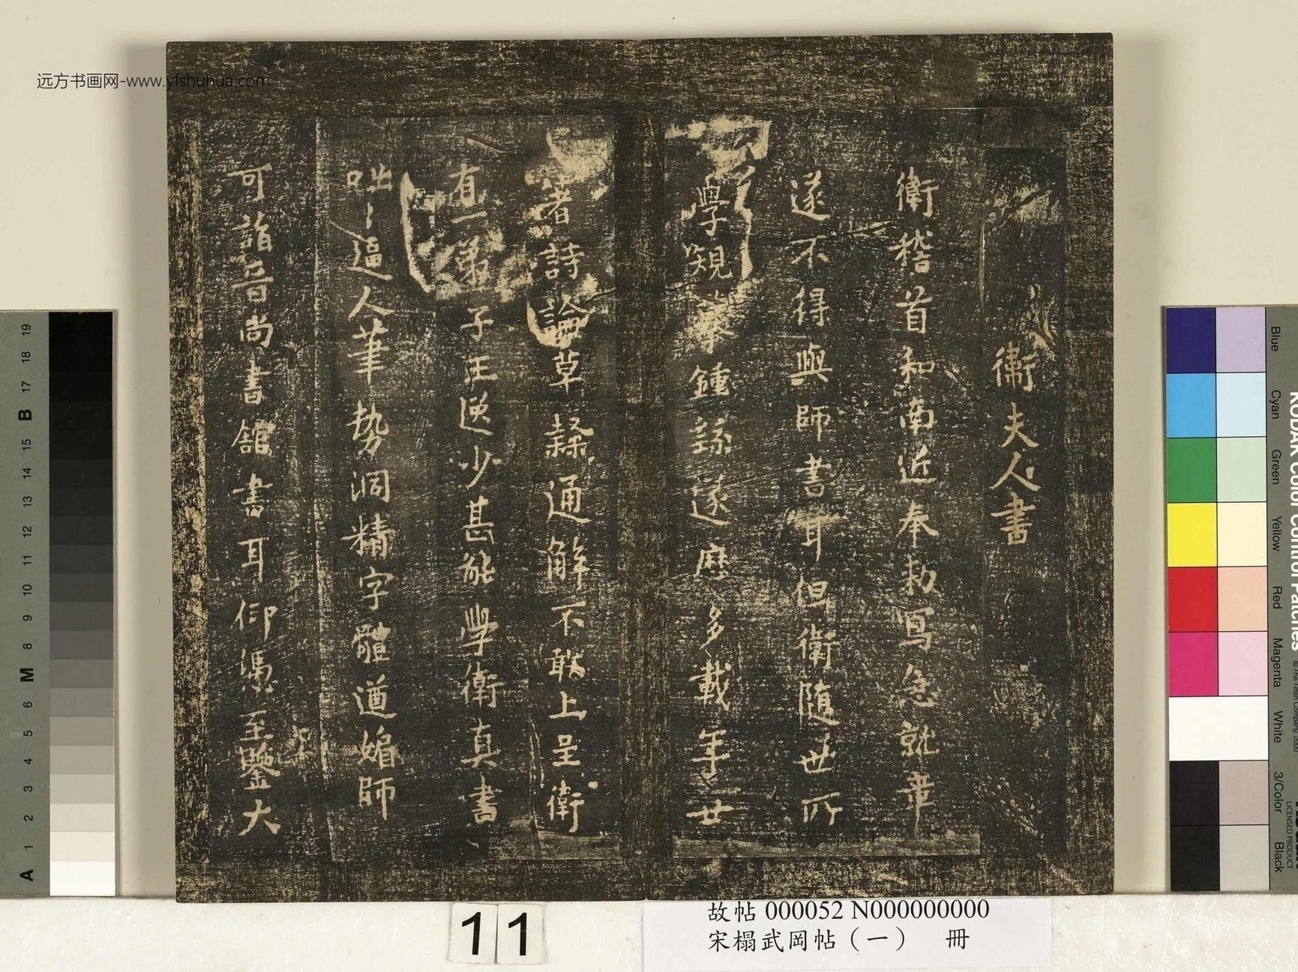 衛夫人書
衛稽首和南近奉勅寫急就章
遂不得與師書耳但衛隨世所
學規摹鍾繇遂歷多載年廿
著詩論草隸通解不敢上呈衛
有一弟子王逸少甚能學衛真書
咄咄逼人筆勢洞精字體遒媚師
可詣晉尚書館書耳仰憑至鑒大
远方书画网-www.yfshuhua.com
11
故帖 000052 N000000000
宋榻武岡帖（一） 冊
KODAK Color Control Patches
Blue
Cyan
Green
Yellow
Red
Magenta
White
3/Color
Black
LICENSED PRODUCT
A 1 2 3 4 5 6 M 8 9 10 11 12 13 14 15 B 17 18 19